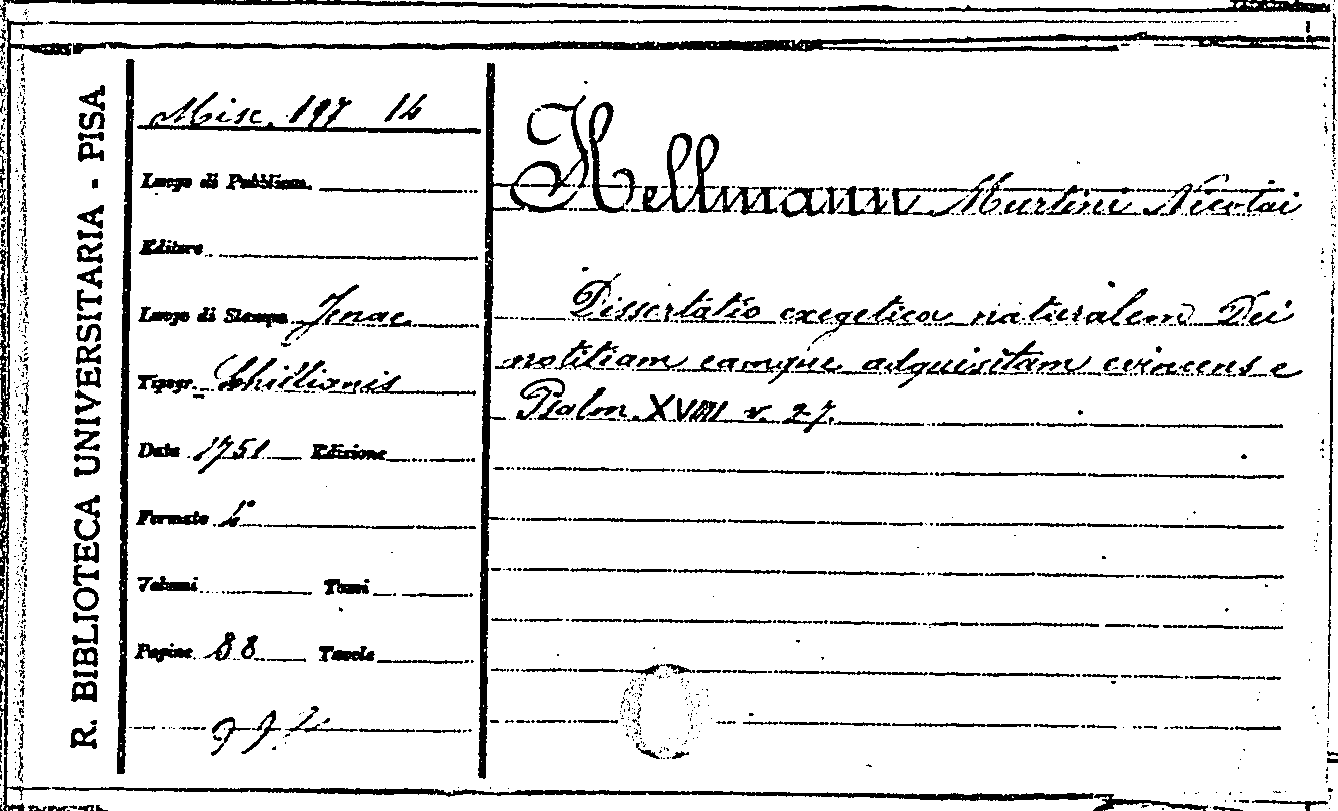 R. BIBLIOTECA UNIVERSITARIA - PISA
Misc. 197 14
Luogo di Pubblicaz.
Editore
Luogo di Stampa Jenae
Tipogr.
Data 1751 Edizione
Formato 4°
Volumi Tomi
Pagine 88 Tavole
Hellmann Martini Nicolai
Dissertatio exegetica naturalem Dei
notitiam eamque adquisitam evincens e
Psalm. XVIIII v. 2-7.